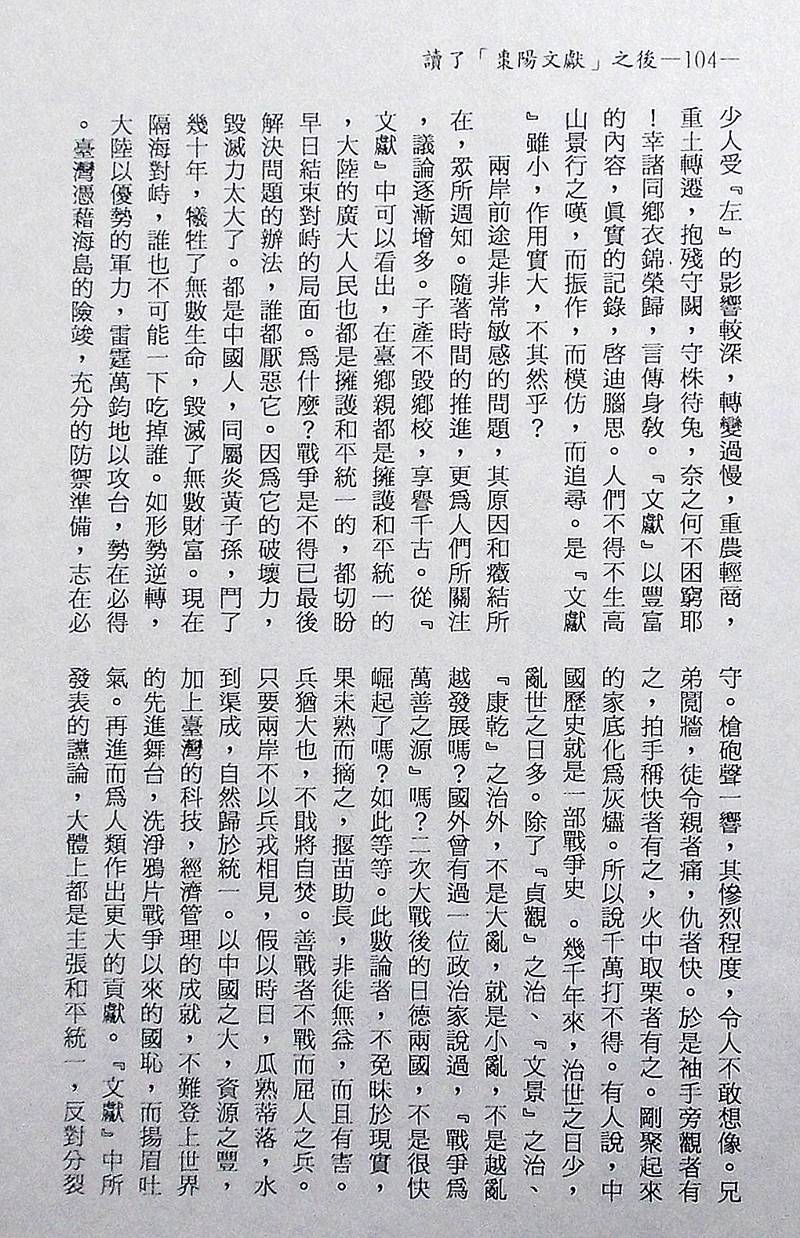 讀了「棗陽文獻」之後—104—
少人受『左』的影響較深，轉變過慢，重農輕商，
重土轉遷，抱殘守闕，守株待兔，奈之何不困窮耶
！幸諸同鄉衣錦榮歸，言傳身敎。『文獻』以豐富
的內容，眞實的記錄，啓迪腦思。人們不得不生高
山景行之嘆，而振作，而模仿，而追尋。是『文獻
』雖小，作用實大，不其然乎？
兩岸前途是非常敏感的問題，其原因和癥結所
在，眾所週知。隨著時間的推進，更爲人們所關注
，議論逐漸增多。子產不毀鄉校，享譽千古。從『
文獻』中可以看出，在臺鄉親都是擁護和平統一的
，大陸的廣大人民也都是擁護和平統一的，都切盼
早日結束對峙的局面。爲什麼？戰爭是不得已最後
解決問題的辦法，誰都厭惡它。因爲它的破壞力，
毀滅力太大了。都是中國人，同屬炎黃子孫，鬥了
幾十年，犧牲了無數生命，毀滅了無數財富。現在
隔海對峙，誰也不可能一下吃掉誰。如形勢逆轉，
大陸以優勢的軍力，雷霆萬鈞地以攻台，勢在必得
。臺灣憑藉海島的險竣，充分的防禦準備，志在必
守。槍砲聲一響，其慘烈程度，令人不敢想像。兄
弟鬩牆，徒令親者痛，仇者快。於是袖手旁觀者有
之，拍手稱快者有之，火中取栗者有之。剛聚起來
的家底化爲灰燼。所以說千萬打不得。有人說，中
國歷史就是一部戰爭史。幾千年來，治世之日少，
亂世之日多。除了『貞觀』之治、『文景』之治、
『康乾』之治外，不是大亂，就是小亂，不是越亂
越發展嗎？國外曾有過一位政治家說過，『戰爭爲
萬善之源』嗎？二次大戰後的日德兩國，不是很快
崛起了嗎？如此等等。此數論者，不免昧於現實，
果未熟而摘之，揠苗助長，非徒無益，而且有害。
兵猶大也，不戢將自焚。善戰者不戰而屈人之兵。
只要兩岸不以兵戎相見，假以時日，瓜熟蒂落，水
到渠成，自然歸於統一。以中國之大，資源之豐，
加上臺灣的科技，經濟管理的成就，不難登上世界
的先進舞台，洗淨鴉片戰爭以來的國恥，而揚眉吐
氣。再進而爲人類作出更大的貢獻。『文獻』中所
發表的讜論，大體上都是主張和平統一，反對分裂